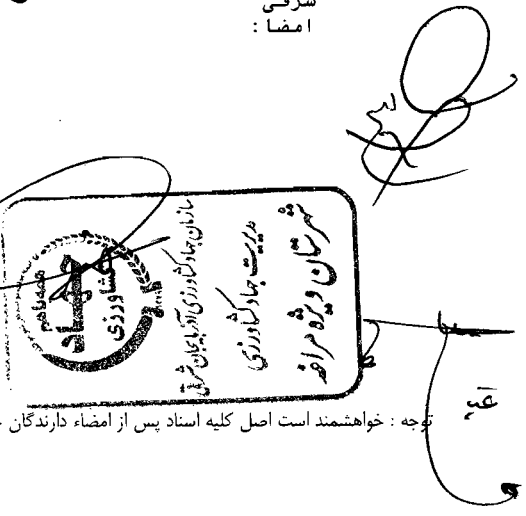 شرقی
امضا :
همه با هم
جهاد
کشاورزی
سازمان جهاد کشاورزی آذربایجان شرقی
مدیریت جهاد کشاورزی
شهرستان ویژه مراغه
توجه : خواهشمند است اصل کلیه اسناد پس از امضاء دارندگان